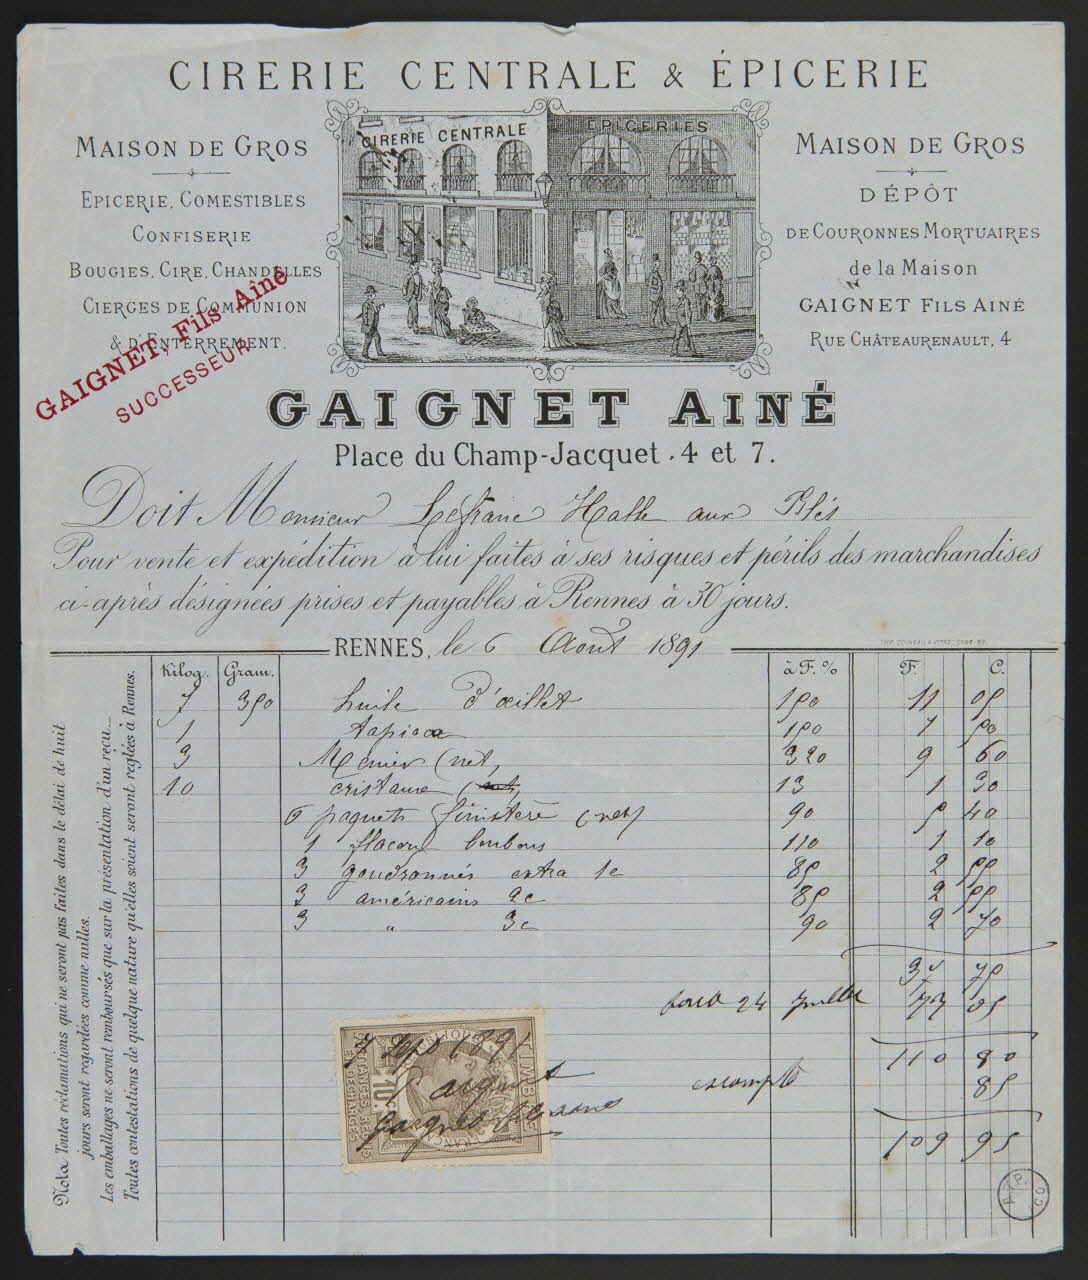 CIRERIE CENTRALE & ÉPICERIE
MAISON DE GROS
EPICERIE, COMESTIBLES
CONFISERIE
BOUGIES, CIRE, CHANDELLES
CIERGES DE COMMUNION
& D'ENTERREMENT.
GAIGNET, Fils Aîné
SUCCESSEUR
CIRERIE CENTRALE
EPICERIES
MAISON DE GROS
DÉPÔT
DE COURONNES MORTUAIRES
de la Maison
GAIGNET FILS AINÉ
RUE CHÂTEAURENAULT, 4
GAIGNET AINÉ
Place du Champ-Jacquet . 4 et 7.
Doit Monsieur Lefranc Halle aux Blés
Pour vente et expédition à lui faites à ses risques et périls des marchandises
ci-après désignées prises et payables à Rennes à 30 jours.
RENNES, le 6 Août 1891
Kilog. Gram. à F. % F. C.
7 350 huile d'œillet 150 11 05
1 tapioca 150 7 50
3 Menier (net) 320 9 60
10 cristaux 13 1 30
6 paquets finistère (net) 90 5 40
1 flacon bonbons 110 1 10
3 goudronnés extra 1c 85 2 55
3 américains 2c 85 2 55
3 " 3c 90 2 70
37 75
24 Juillet 73 05
110 80
escompte 85
109 95
Nota Toutes réclamations qui ne seront pas faites dans le délai de huit
jours seront regardées comme nulles.
Les emballages ne seront remboursés que sur la présentation d'un reçu...
Toutes contestations de quelque nature qu'elles soient seront reglées à Rennes.
TIMBRE
QUITTANCES REÇUS
ET DÉCHARGES
10c
7 Sept 1891
Gaignet